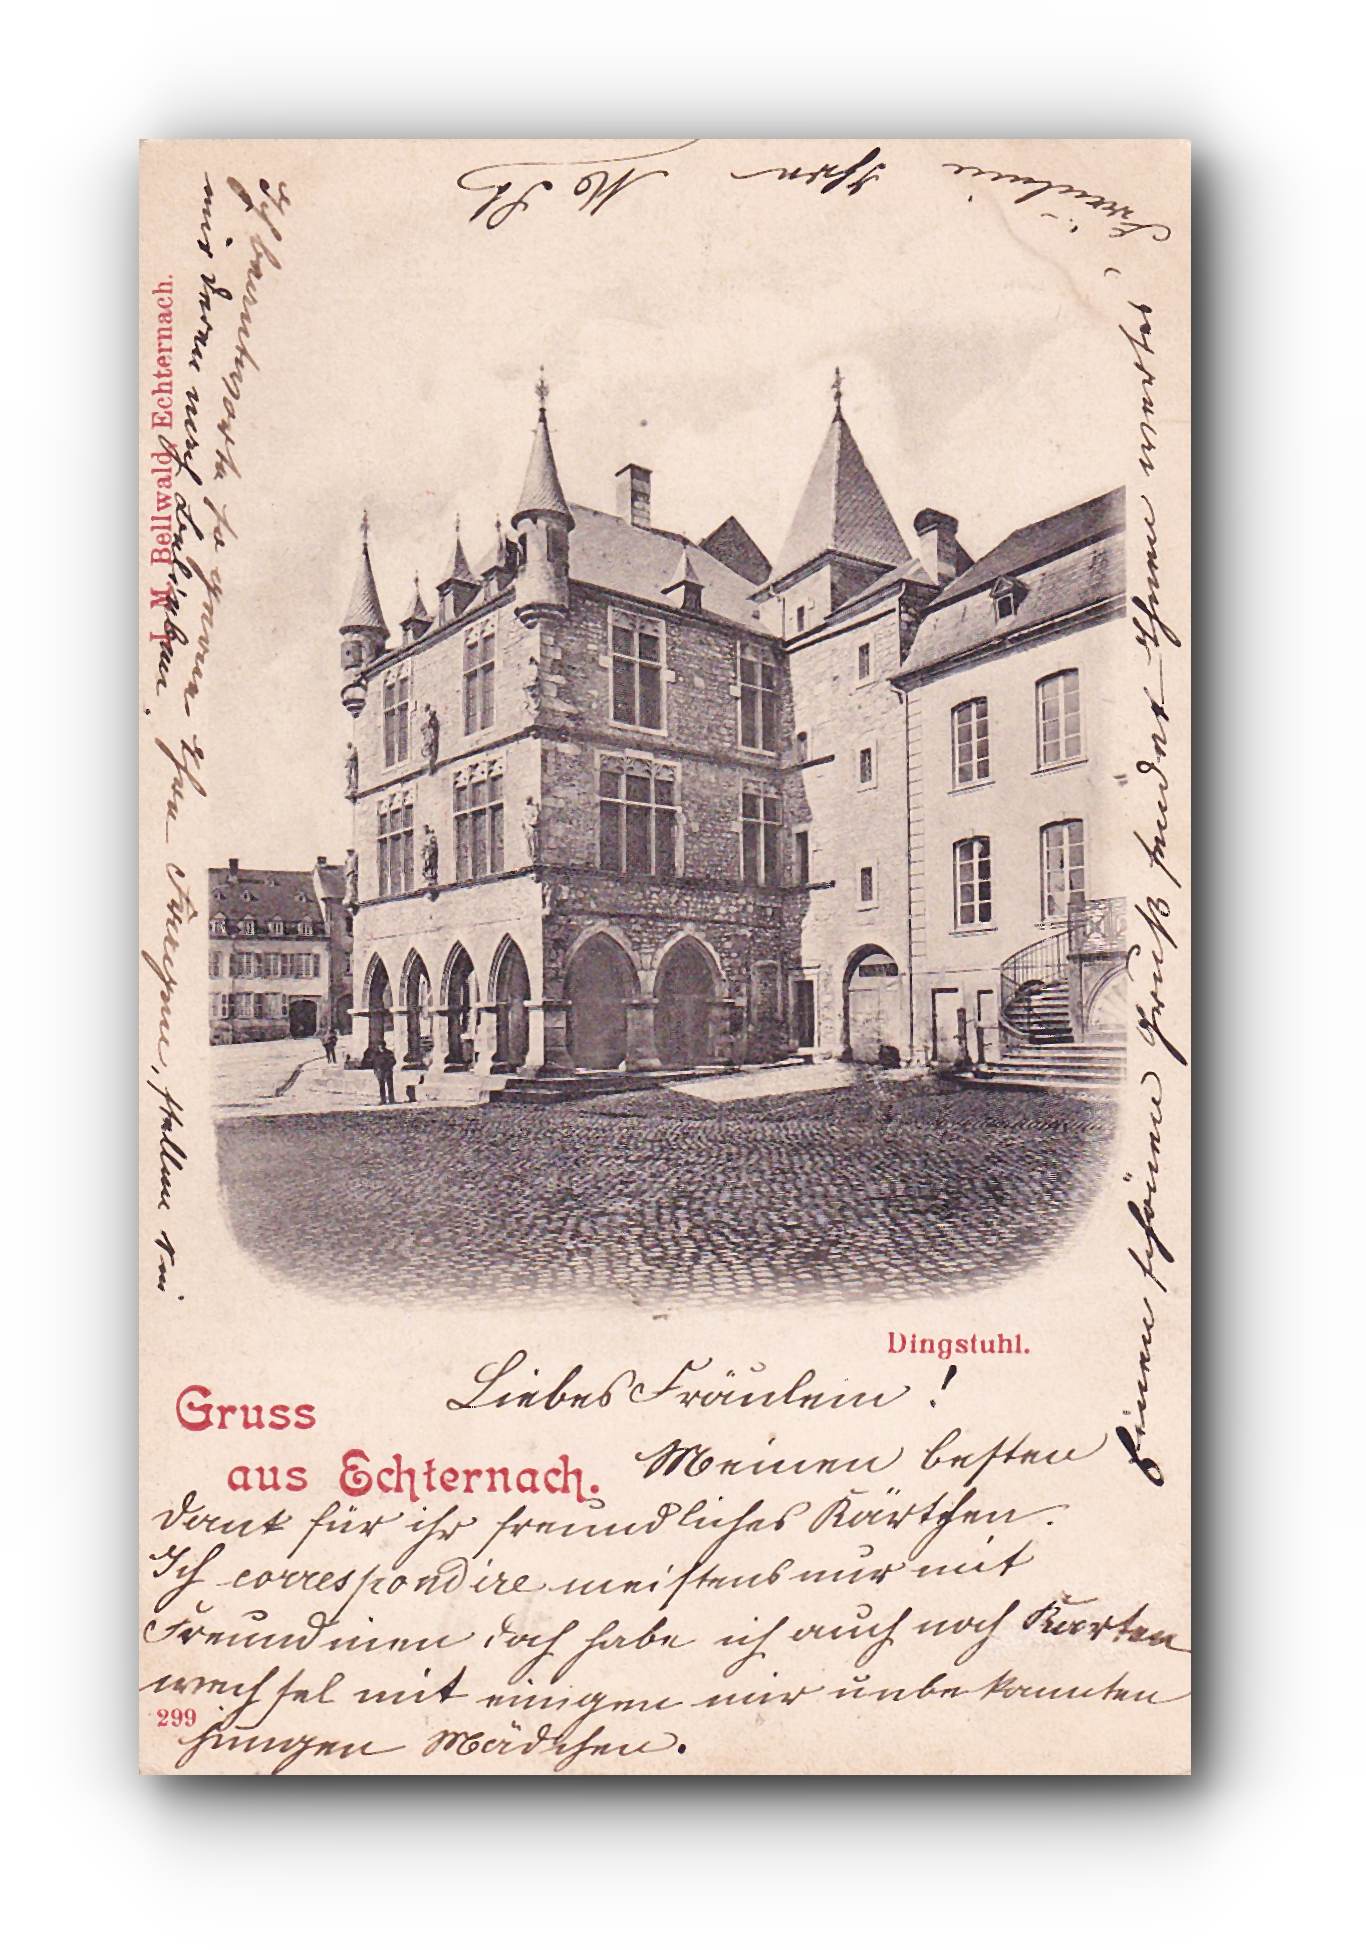 Dingstuhl.
Gruss
aus Echternach.
J. M. Bellwald, Echternach.
299
Liebes Fräulein!
Meinen besten
Dank für ihr freundliches Kärtchen.
Ich correspondire meistens nur mit
Freundinen doch habe ich auch noch Karten
wechsel mit einigen mir unbekannten
jungen Mädchen.
Ich beantworte so gerne Ihre Fragen, stellen Sie
mir deren noch
Einen schönen Gruß sendet Ihnen wertes
Fräulein Ihre